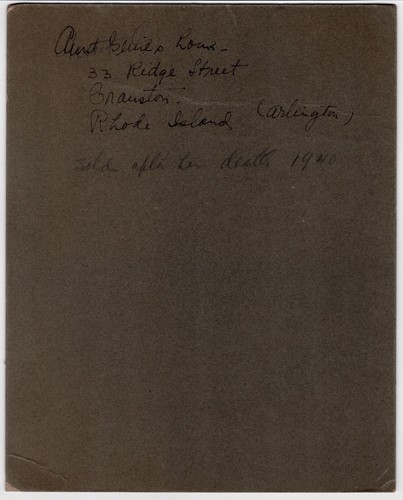 Aunt
33 Ridge Street
Cranston.
Rhode Island (Arlington)
sold after her death 1940